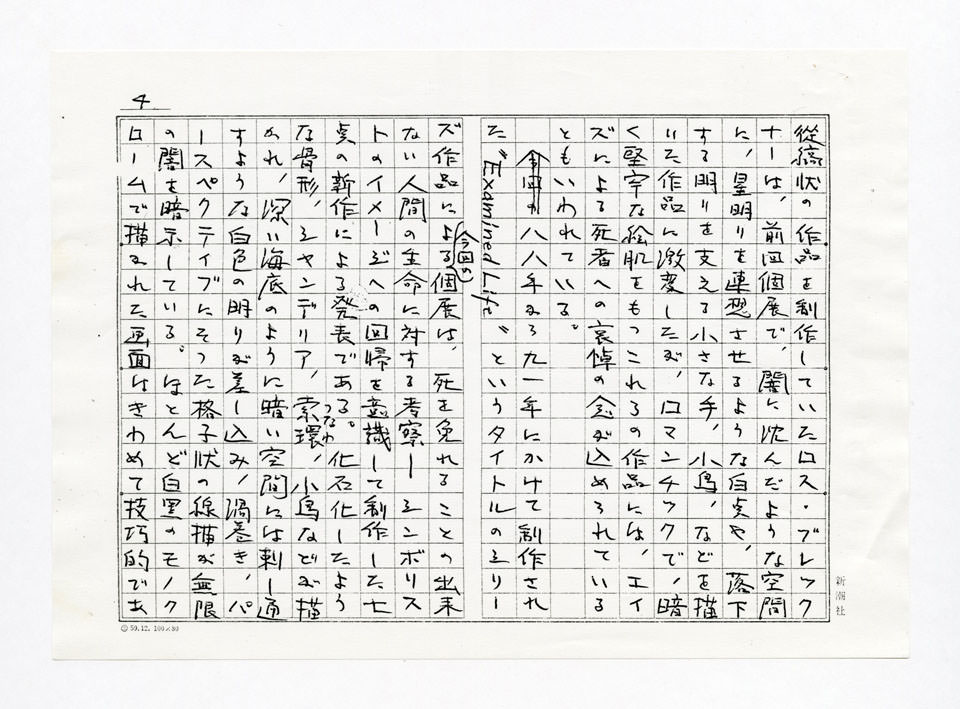 4
従縞状の作品を制作していたロス・ブレック
ナーは、前回個展で、闇に沈んだような空間
に、星明りを連想させるような白点や、落下
する明りを支える小さな手、小鳥、などを描
いた作品に激変したが、ロマンチックで、暗
く堅牢な絵肌をもつこれらの作品には、エイ
ズによる死者への哀悼の念が込められている
ともいわれている。
今回の八八年から九一年にかけて制作され
た“Examined Life”というタイトルのシリー
ズ作品による今回の個展は、死を免れることの出来
ない人間の生命に対する考察―シンボリス
トのイメージへの回帰を意識して制作した七
点の新作による発表である。化石化したよう
な骨形、シャンデリア、索環、つなわ小鳥などが描
かれ、深い海底のように暗い空間には刺し通
すような白色の明りが差し込み、渦巻き、パ
ースペクティブにそった格子状の線描が無限
の闇を暗示している。ほとんど白黒のモノク
ロームで描かれた画面はきわめて技巧的であ
新潮社
59.12. 100×80